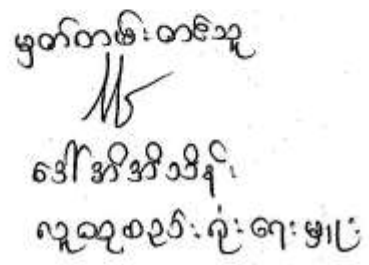 မှတ်တမ်းတင်သူ
ဒေါ်အိအိသိန်း
လူထုစည်းရုံးရေးမှူး